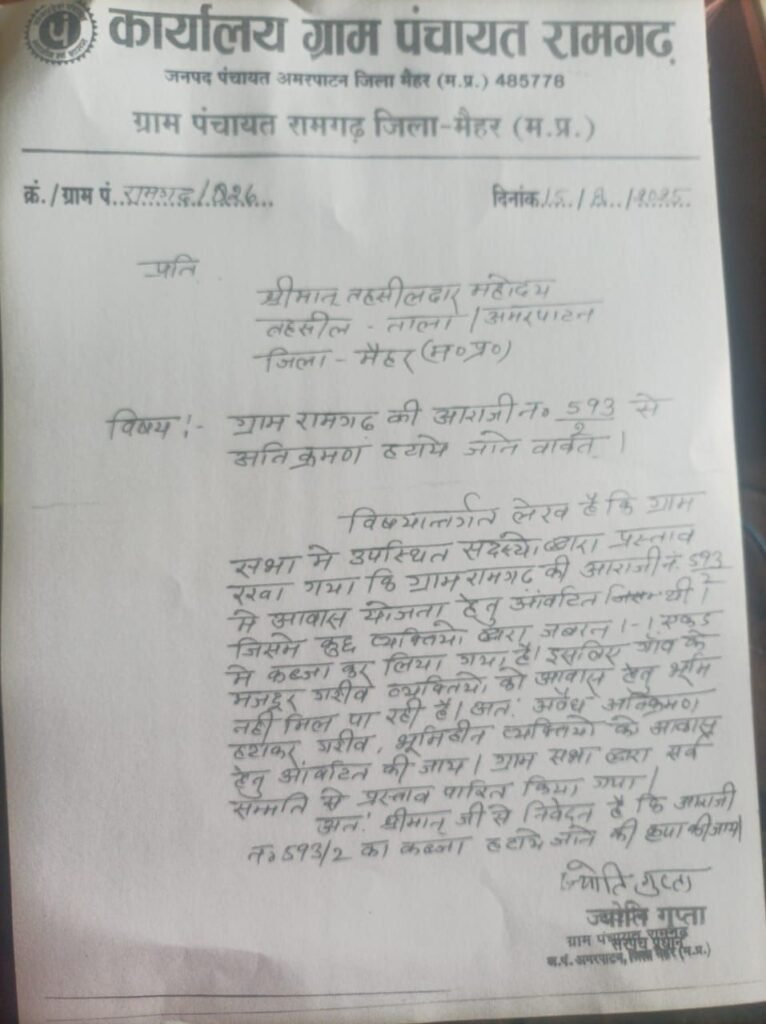 कार्यालय ग्राम पंचायत रामगढ़
जनपद पंचायत अमरपाटन जिला मैहर (म.प्र.) 485778
ग्राम पंचायत रामगढ़ जिला-मैहर (म.प्र.)
क्रं./ग्राम पं...रामगढ/026...
दिनांक 15../8../2025
प्रति
श्रीमान् तहसीलदार महोदय
तहसील - ताला / अमरपाटन
जिला - मैहर (म०प्र०)
विषय :- ग्राम रामगढ की आराजी न० 593/2 से
अतिक्रमण हटाये जाने वाबत ।
विषयान्तर्गत लेख है कि ग्राम
सभा मे उपस्थित सदस्यो द्वारा प्रस्ताव
रखा गया कि ग्राम रामगढ की आराजी नं. 593/2
मे आवास योजना हेतु आंवटित थी।
जिसमे कुछ व्यक्तियो द्वारा जबरन 1-1 एकड
मे कब्जा कर लिया गया है। इसलिए गाँव के
मजदूर गरीव व्यक्तियो को आवास हेतु भूमि
नही मिल पा रही है। अतः अवैध अतिक्रमण
हटाकर गरीव, भूमिहीन व्यक्तियो को आवास
हेतु आंवटित की जाय। ग्राम सभा द्वारा सर्व
सम्मति से प्रस्ताव पारित किया गया।
अतः श्रीमान् जी से निवेदन है कि आराजी
न० 593/2 का कब्जा हटाये जाने की कृपा की जाय।
ज्योति गुप्ता
ज्योति गुप्ता
सरपंच प्रधान
ग्राम पंचायत रामगढ़
ज.पं. अमरपाटन, जिला मैहर (म.प्र.)